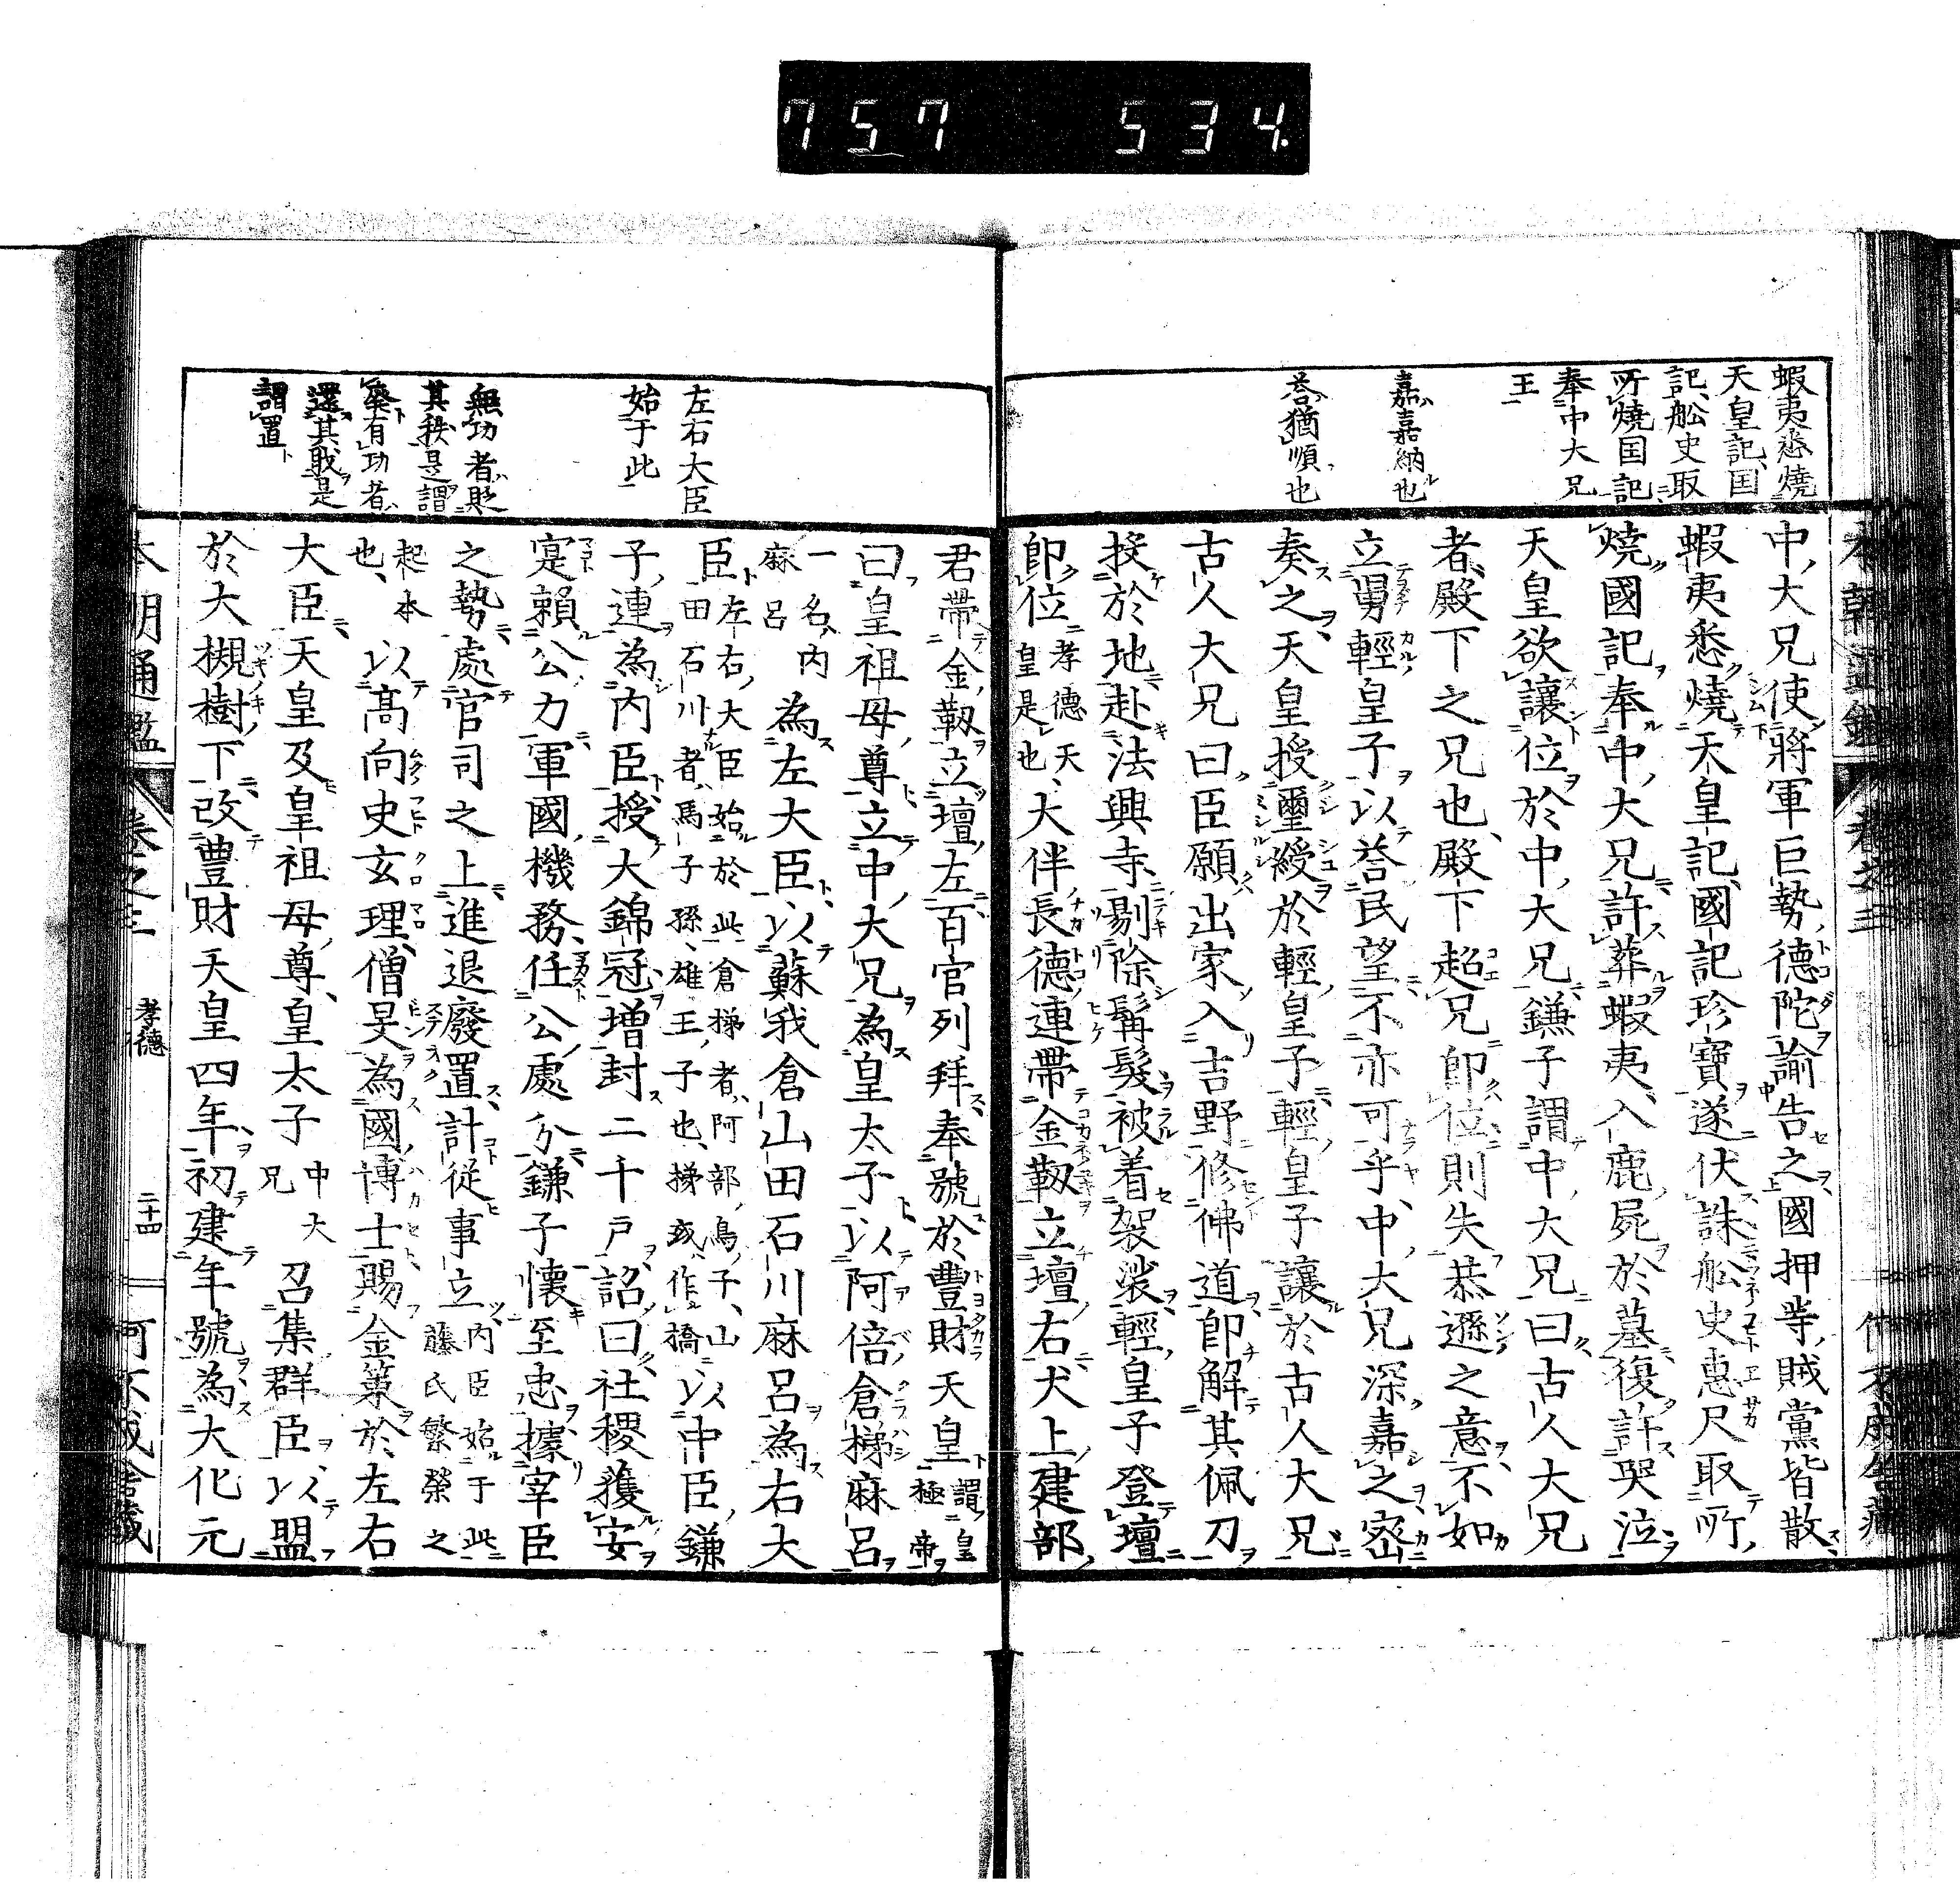 757 534.
蝦夷悉燒
天皇記、国
記、舩史取
所燒国記
奉中大兄
王
嘉嘉納也
荅猶順也
中大兄使將軍巨勢德陀諭告之國押等賊黨皆散
蝦夷悉燒天皇記、國記珍寶遂伏誅舩史惠尺取所
燒國記奉中大兄許葬蝦夷、入鹿屍於墓復許哭泣
天皇欲讓位於中大兄鎌子謂中大兄曰古人大兄
者殿下之兄也、殿下超兄卽位則失恭遜之意不如
立舅輕皇子以荅民望不亦可乎、中大兄深嘉之密
奏之天皇授璽綬於輕皇子輕皇子讓於古人大兄
古人大兄曰臣願出家入吉野修佛道卽解其佩刀
投於地赴法興寺剔除髯髮被着袈裟輕皇子登壇
卽位孝德天皇是也、大伴長德連帶金靱立壇右犬上建部
君帶金靱立壇左百官列拜奉號於豐財天皇謂皇極帝
曰皇祖母尊立中大兄為皇太子以阿倍倉梯麻呂
一名内麻呂為左大臣以蘇我倉山田石川麻呂為右大
臣左右大臣始於此倉梯者阿部鳥子、山田石川者馬子孫、雄王子也、梯或作橋以中臣鎌
子連為内臣授大錦冠増封二千戸詔曰社稷獲安
寔賴公力軍國機務任公處分鎌子懷至忠據宰臣
之勢處官司之上進退廢置計從事立内臣始于此藤氏繁榮之
起本也、以髙向史玄理僧旻為國博士賜金策於左右
大臣天皇及皇祖母尊皇太子中大兄召集群臣以盟
於大槻樹下改豐財天皇四年初建年號為大化元
左右大臣
始于此
無功者貶
其秩是謂
廢有功者
還其職是
謂置
本朝通鑑 卷之三 孝德 二十四